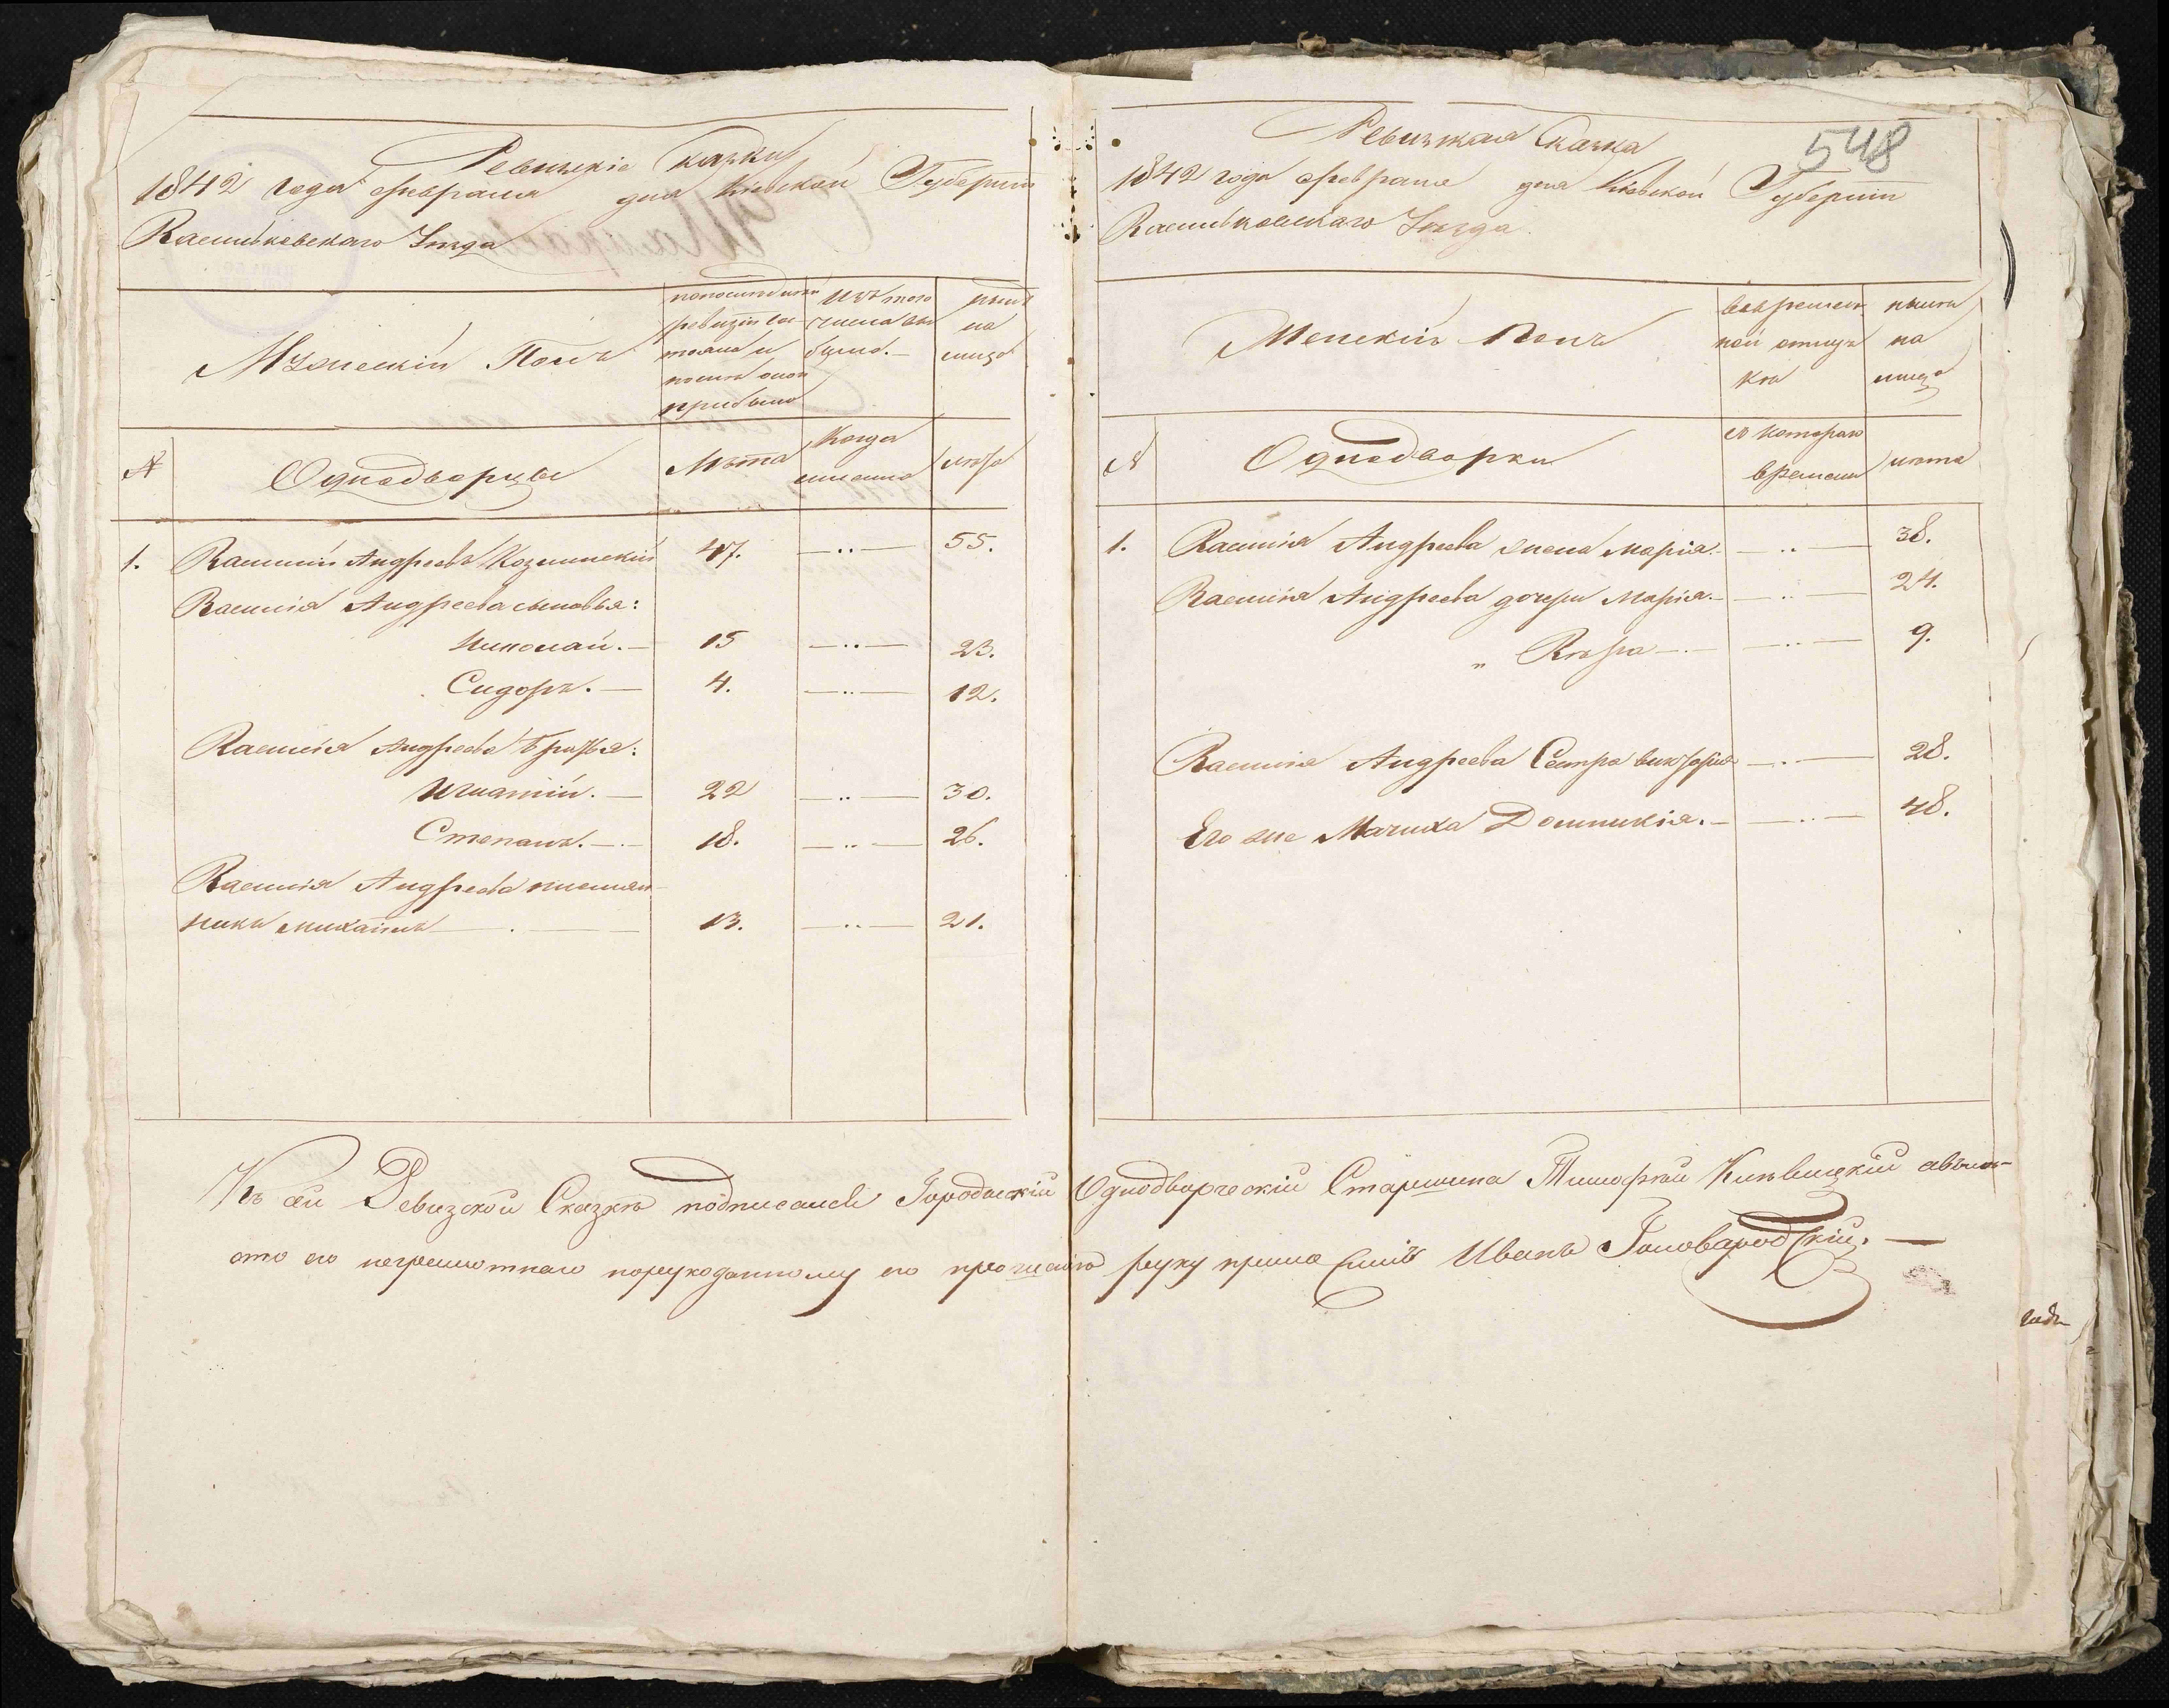 Ревизкіе Сказки
1842 года февраля дня Кіевской Губерніи
Васильковскаго Уезда
Мужескій Полъ
по последней ревизіи состояло и после оной прибыло
изъ того числа выбыло.
ныне на лицо
№
Однодворцы
Лета
Когда имянно
лета
1. Василій Андреевъ Козлинскій 47. —..— 55.
Василія Андреева сыновья:
Николай. — 15 —..— 23.
Сидоръ. — 4. —..— 12.
Василія Андреева братья:
Игнатій. — 22 —..— 30.
Степанъ. — 18. —..— 26.
Василія Андреева племян-
никъ Михаилъ — 13. —..— 21.
548
Ревизкая Сказка
1842 года февраля дня Кіевской Губерніи
Васильковскаго Уезда.
Женскій Полъ
во временной отлучке
ныне на лицо
№
Однодворки
съ котораго времени
лета
1. Василія Андреева жена Марія. —..— 38.
Василія Андреева дочери Марія. —..— 24.
" Вера —..— 9.
Василія Андреева Сестра Викторія —..— 28.
Его же Мачиха Доминикія. —..— 48.
Къ сей Ревизской Сказке подписался Городиский Однодворческій Старшина Тимофей
его неграмотнаго порукоданному его прозбе руку прило Иванъ